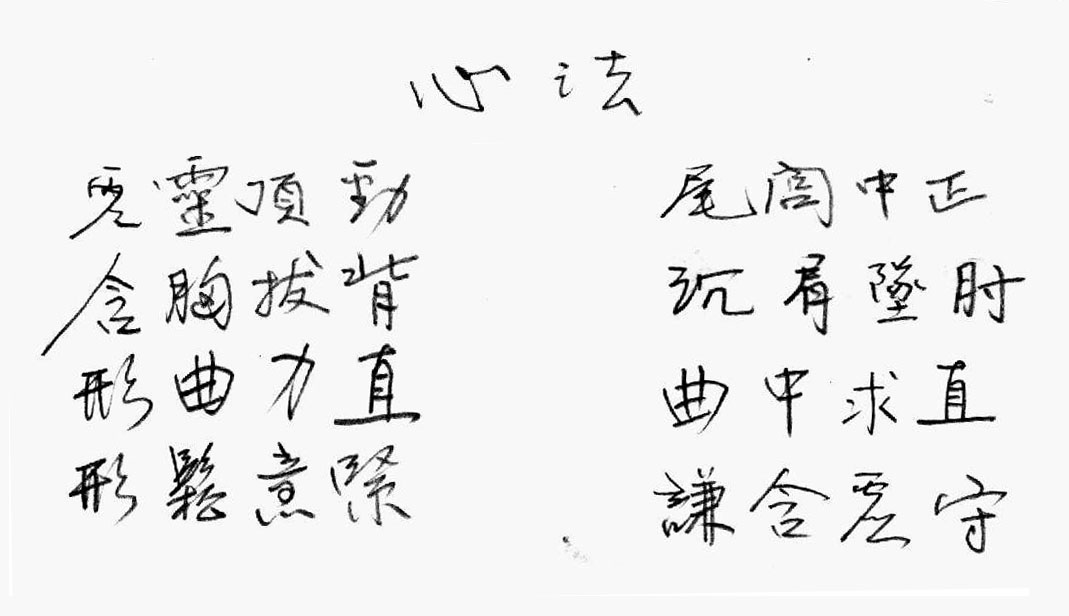 心法
虛靈頂勁 尾閭中正
含胸拔背 沉肩墜肘
形曲力直 曲中求直
形鬆意緊 謙含虛守